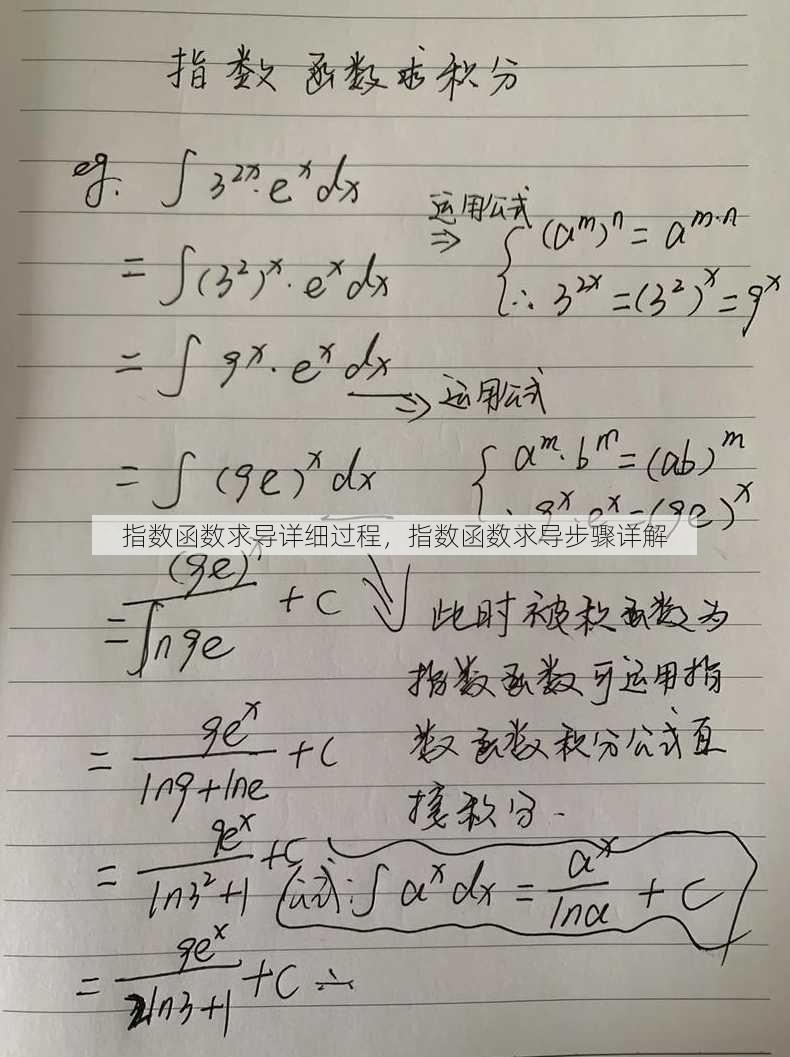 指数函数求积分
eg. ∫3^{2x}·e^x dx
=∫(3^2)^x·e^x dx
运用公式
⇒ { (a^m)^n = a^{m·n}
∴ 3^{2x}=(3^2)^x=9^x
=∫9^x·e^x dx
⇒ 运用公式
=∫(9e)^x dx
{ a^m·b^m=(ab)^m
∴ 9^x·e^x=(9e)^x
指数函数求导详细过程，指数函数求导步骤详解
=(9e)^x/ln9e + C
此时被积函数为
指数函数可运用指
数函数积分公式直
接积分.
=9e^x/(ln9+lne) + C
=9e^x/(ln3^2+1) + C
公式:∫a^x dx = a^x/lna + C
=9e^x/(2ln3+1) + C